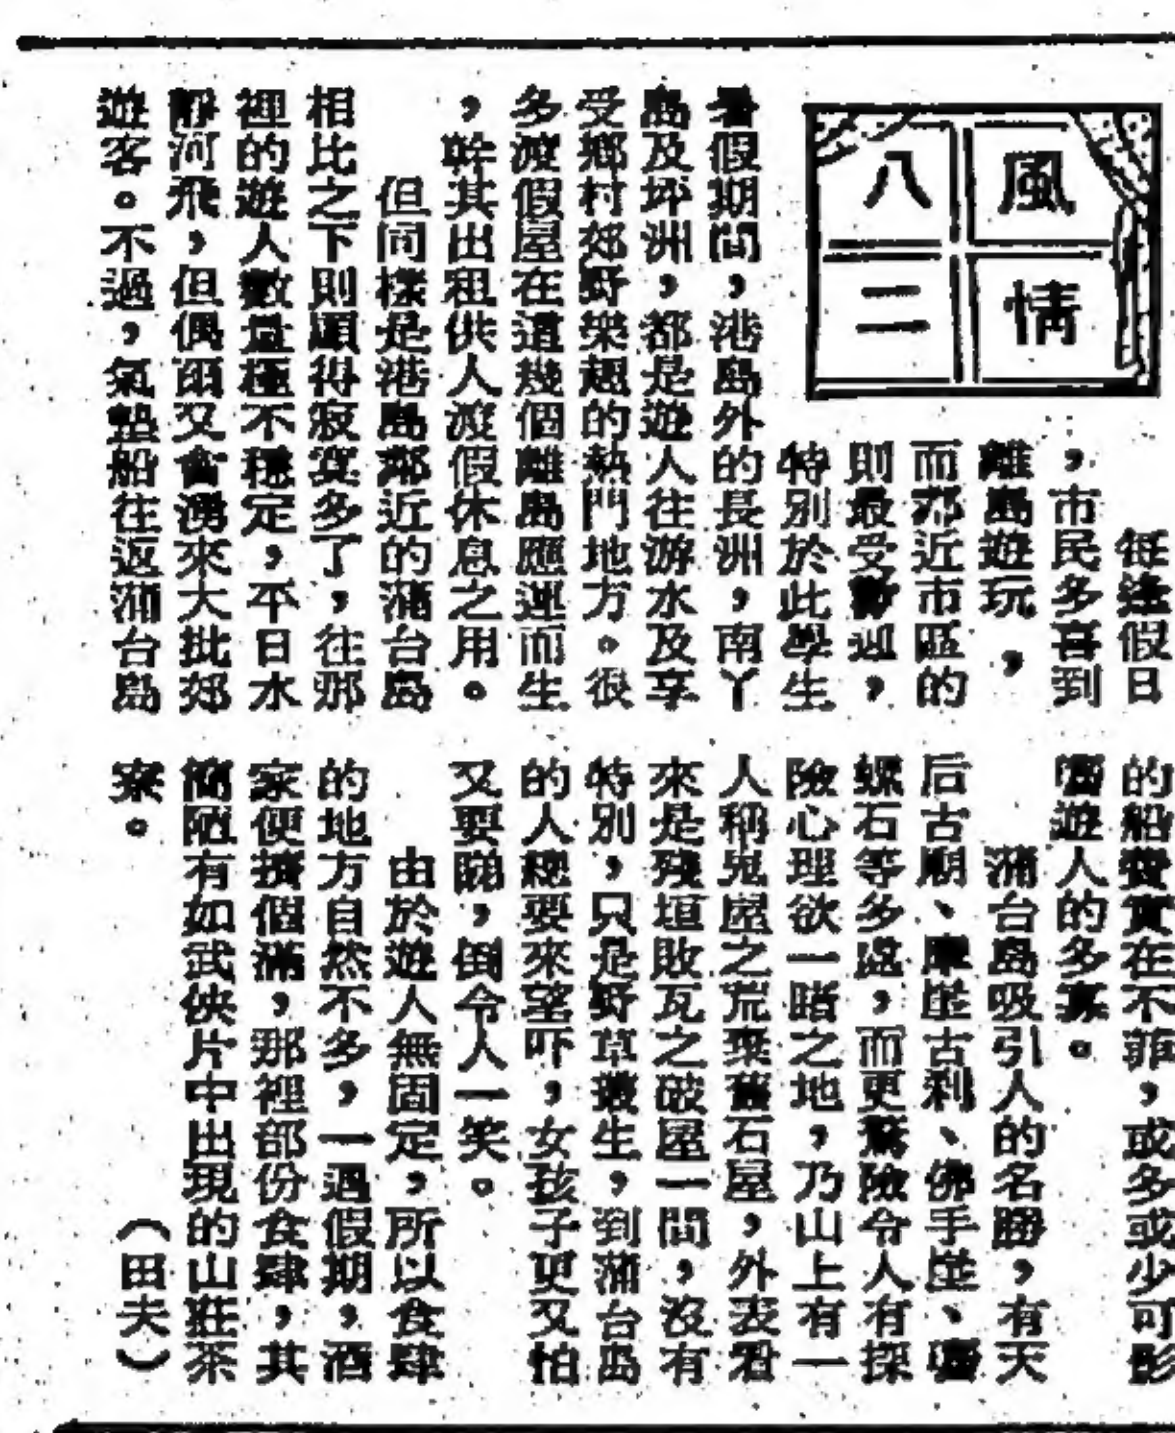 風情
八二
每逢假日
，市民多喜到
離島遊玩，
而鄰近市區的
則最受歡迎，
特別於此學生
暑假期間，港島外的長洲，南丫
島及坪洲，都是遊人往游水及享
受鄉村郊野樂趣的熱門地方。很
多渡假屋在這幾個離島應運而生
，幹其出租供人渡假休息之用。
但同樣是港島鄰近的蒲台島
相比之下則顯得寂寞多了，往那
裡的遊人數量極不穩定，平日水
靜河飛，但偶爾又會湧來大批郊
遊客。不過，氣墊船往返蒲台島
的船費實在不菲，或多或少可影
響遊人的多寡。
蒲台島吸引人的名勝，有天
后古廟、摩崖古刹、佛手崖、響
螺石等多處，而更驚險令人有探
險心理欲一睹之地，乃山上有一
人稱鬼屋之荒棄舊石屋，外表看
來是殘垣敗瓦之破屋一間，沒有
特別，只是野草叢生，到蒲台島
的人總要來望吓，女孩子更又怕
又要睇，倒令人一笑。
由於遊人無固定，所以食肆
的地方自然不多，一遇假期，酒
家便擠個滿，那裡部份食肆，其
簡陋有如武俠片中出現的山莊茶
寮。
（田夫）